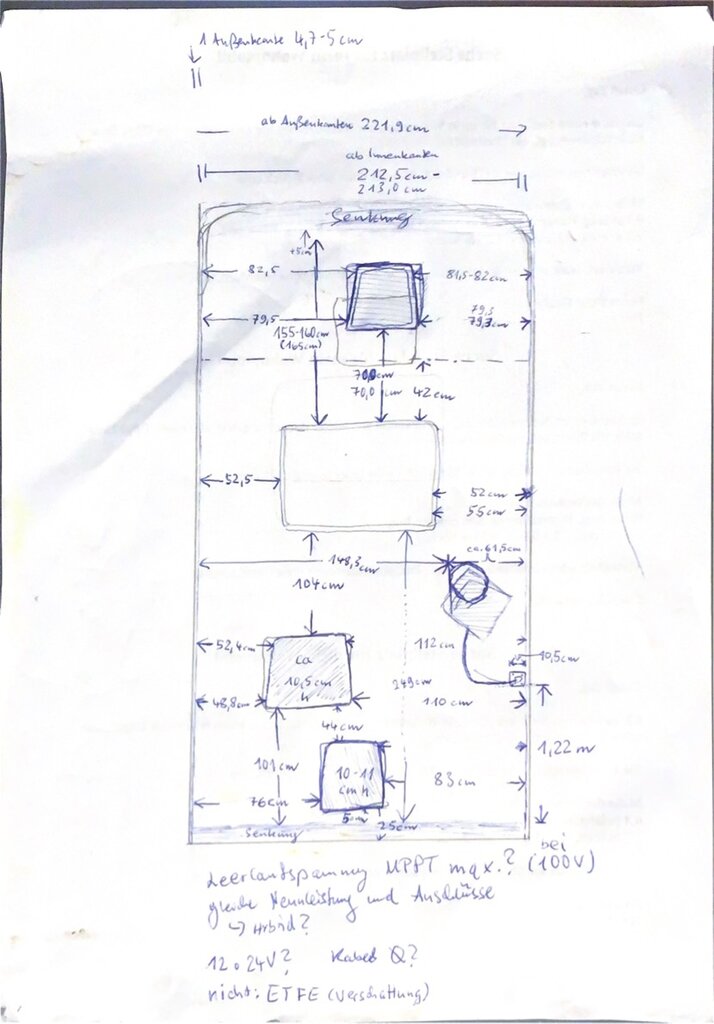 1 Außenkante 4,7-5cm
ab Außenkanten 221,9cm
ab Innenkanten
212,5cm-
213,0cm
Senkung
+5cm
82,5
81,5-82cm
79,5
79,5
79,3cm
155-160cm
(165cm)
70,0cm
70,0cm
42cm
52,5
52cm
55cm
ca. 61,5cm
148,3cm
104cm
52,4cm
112cm
10,5cm
ca
10,5cm
h
249cm
48,8cm
110cm
44cm
1,22m
101cm
10-11
cm h
83cm
76cm
5cm
25cm
Senkung
bei
Leerlaufspannung MPPT max.? (100V)
gleiche Nennleistung und Anschlüsse
↳ Hybrid?
12 o 24V? Kabel Q?
nicht: ETFE (Verschattung)